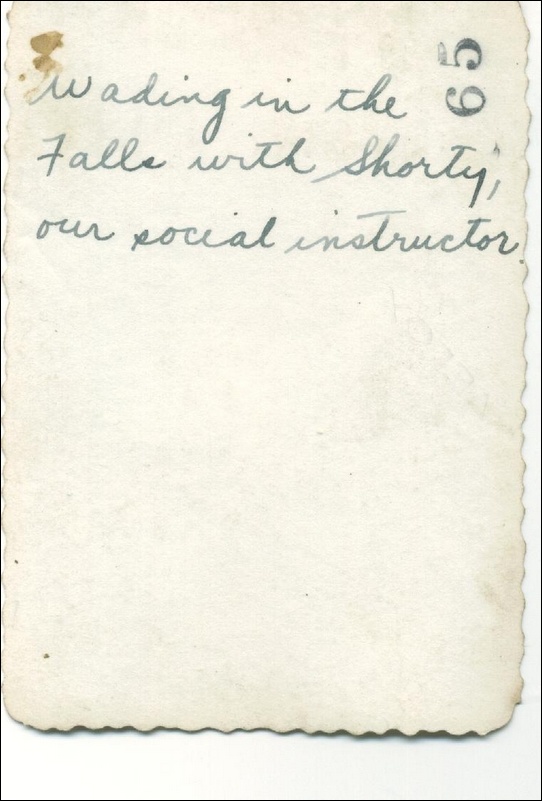 65
Wading in the
Falls with Shorty,
our social instructor.